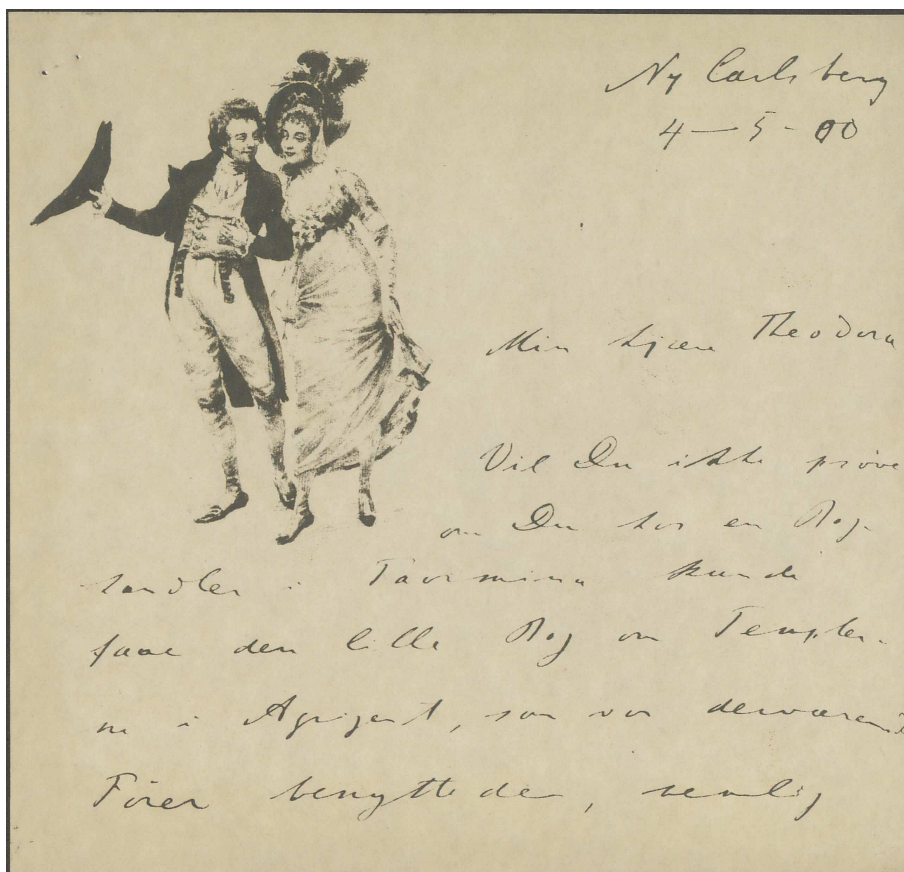 Ny Carlsberg
4-5-00
Min kjære Theodora
Vil Du ikke prøve
om Du hos en Bog-
handler i Taormina kunde
faae den lille Bog om Temple-
ne i Agrigent, som vor derværende
Fører benyttede, nemlig